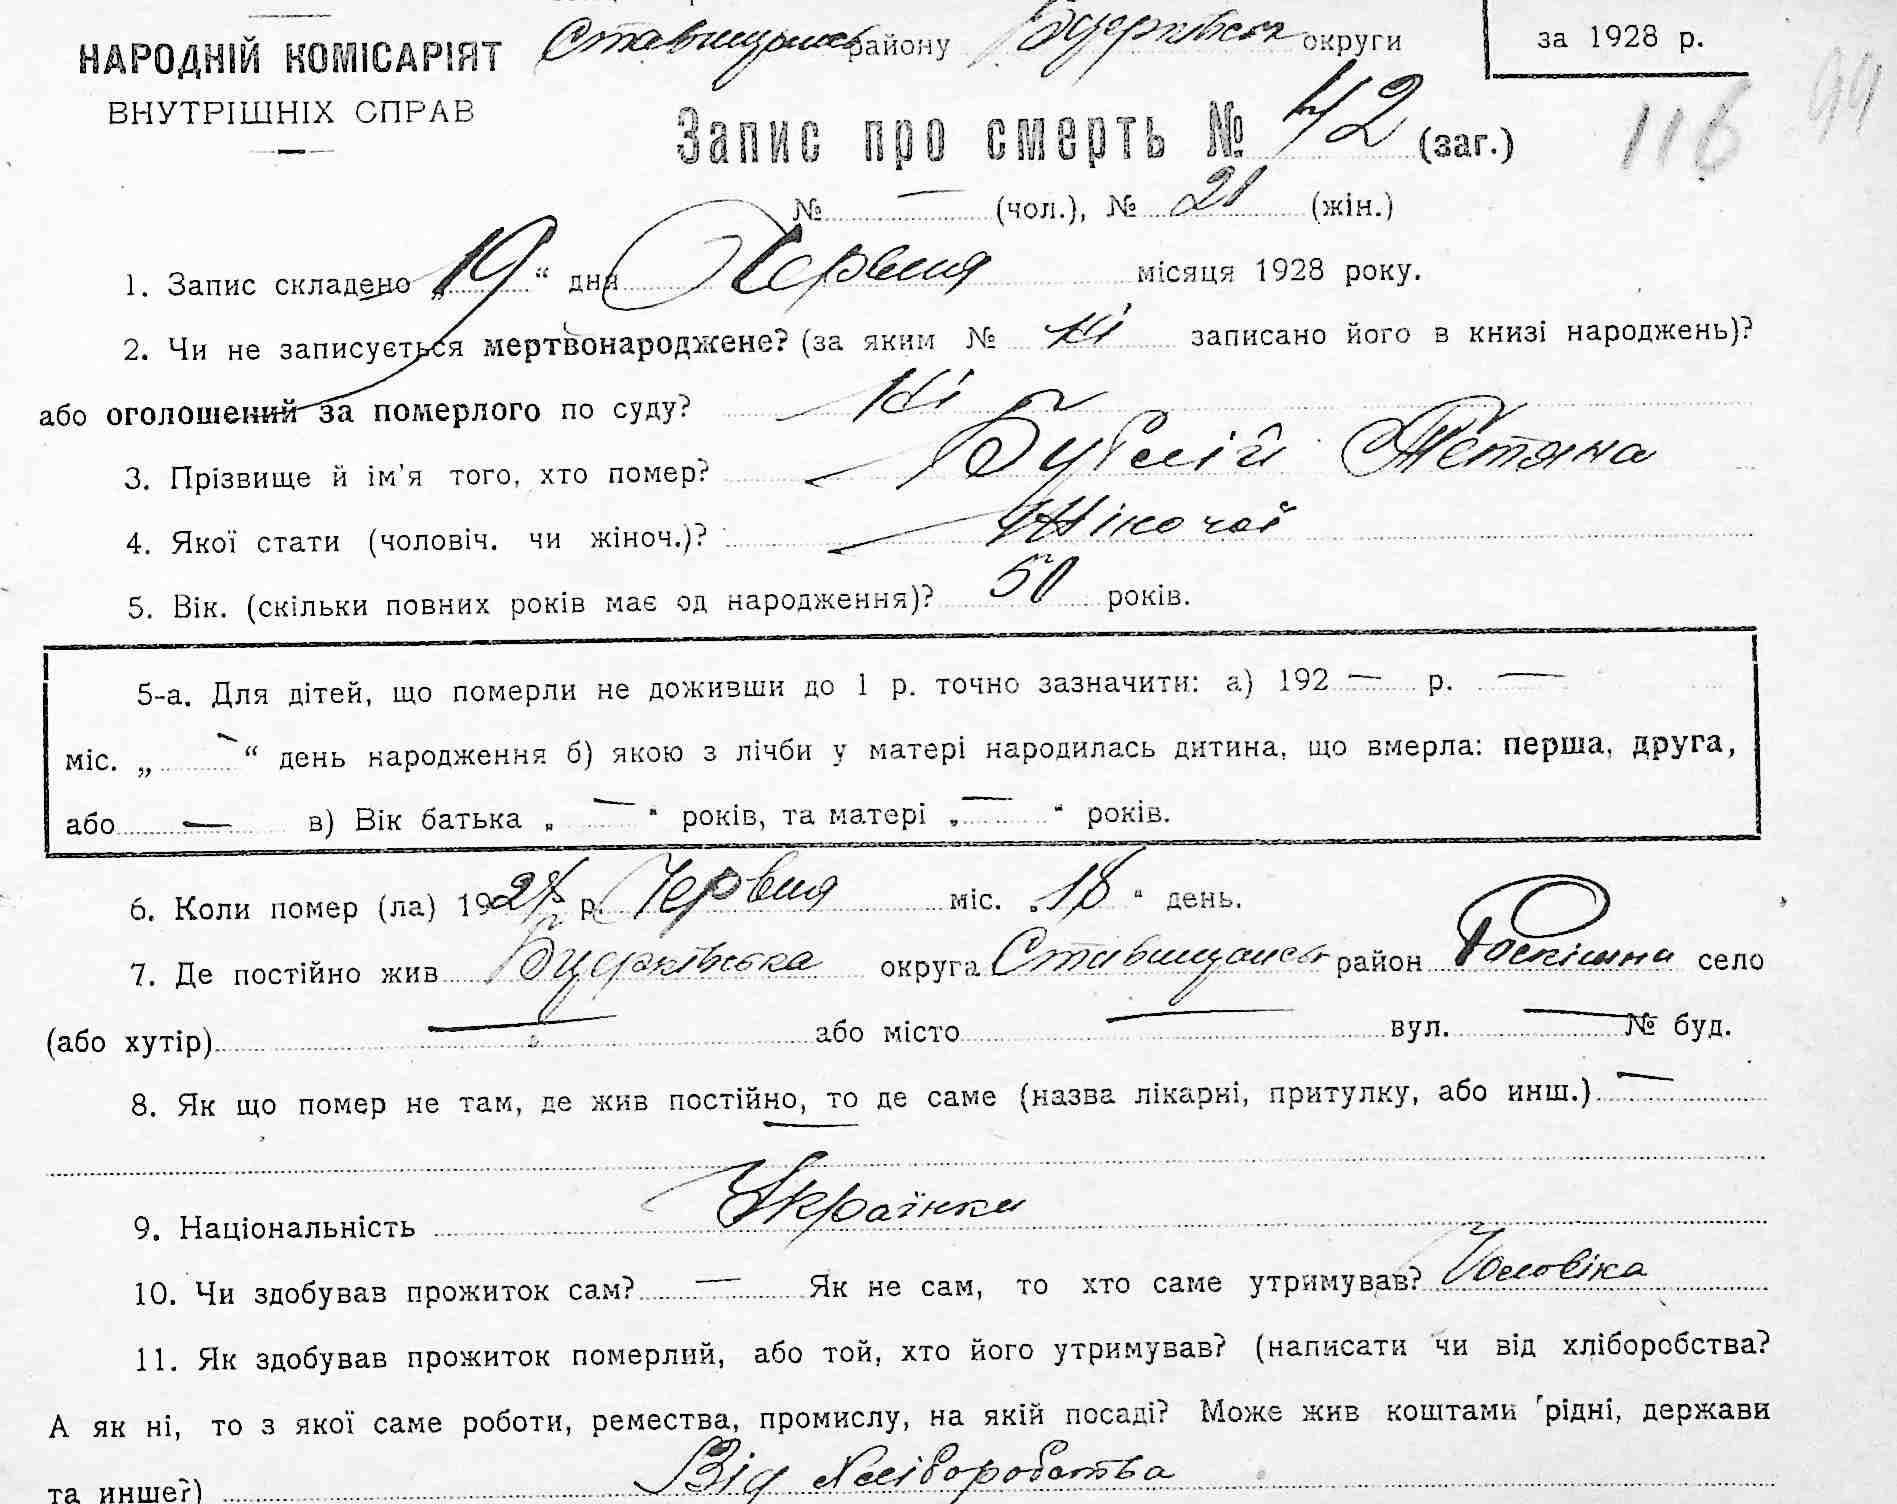 Ставищансь району Буцрківськ округи за 1928 р.
НАРОДНІЙ КОМІСАРІЯТ
ВНУТРІШНІХ СПРАВ
Запис про смерть № 42 (заг.) 116 99
№ — (чол.), № 21 (жін.)
1. Запис складено „19“ дня Червня місяця 1928 року.
2. Чи не записується мертвонароджене? (за яким № Ні записано його в книзі народжень)?
або оголошений за померлого по суду? Ні
3. Прізвище й ім'я того, хто помер? Бублій Тетяна
4. Якої стати (чоловіч. чи жіноч.)? Жіночої
5. Вік. (скільки повних років має од народження)? 50 років.
5-а. Для дітей, що померли не доживши до 1 р. точно зазначити: а) 192 — р. —
міс. „ — “ день народження б) якою з лічби у матері народилась дитина, що вмерла: перша, друга,
або — в) Вік батька „ — “ років, та матері „ — “ років.
6. Коли помер (ла) 1928 р. Червня міс. „18“ день.
7. Де постійно жив Буцрківська округа Ставищансь район Роскішна село
(або хутір) — або місто — вул. — № буд.
8. Як що помер не там, де жив постійно, то де саме (назва лікарні, притулку, або инш.) —
—
9. Національність Українка
10. Чи здобував прожиток сам? — Як не сам, то хто саме утримував? Чоловіка
11. Як здобував прожиток померлий, або той, хто його утримував? (написати чи від хліборобства?
А як ні, то з якої саме роботи, ремества, промислу, на якій посаді? Може жив коштами рідні, держави
та инше?) Від хліборобства